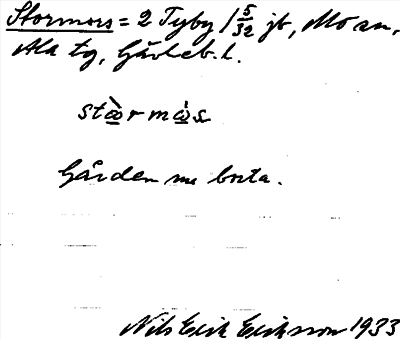 Stormors = 2 Tyby 1 5/32 jb, Mo an,
Ala tg, Gävleb. l.
stòrmós
Gården nu borta.
Nils Erik Eriksson 1933